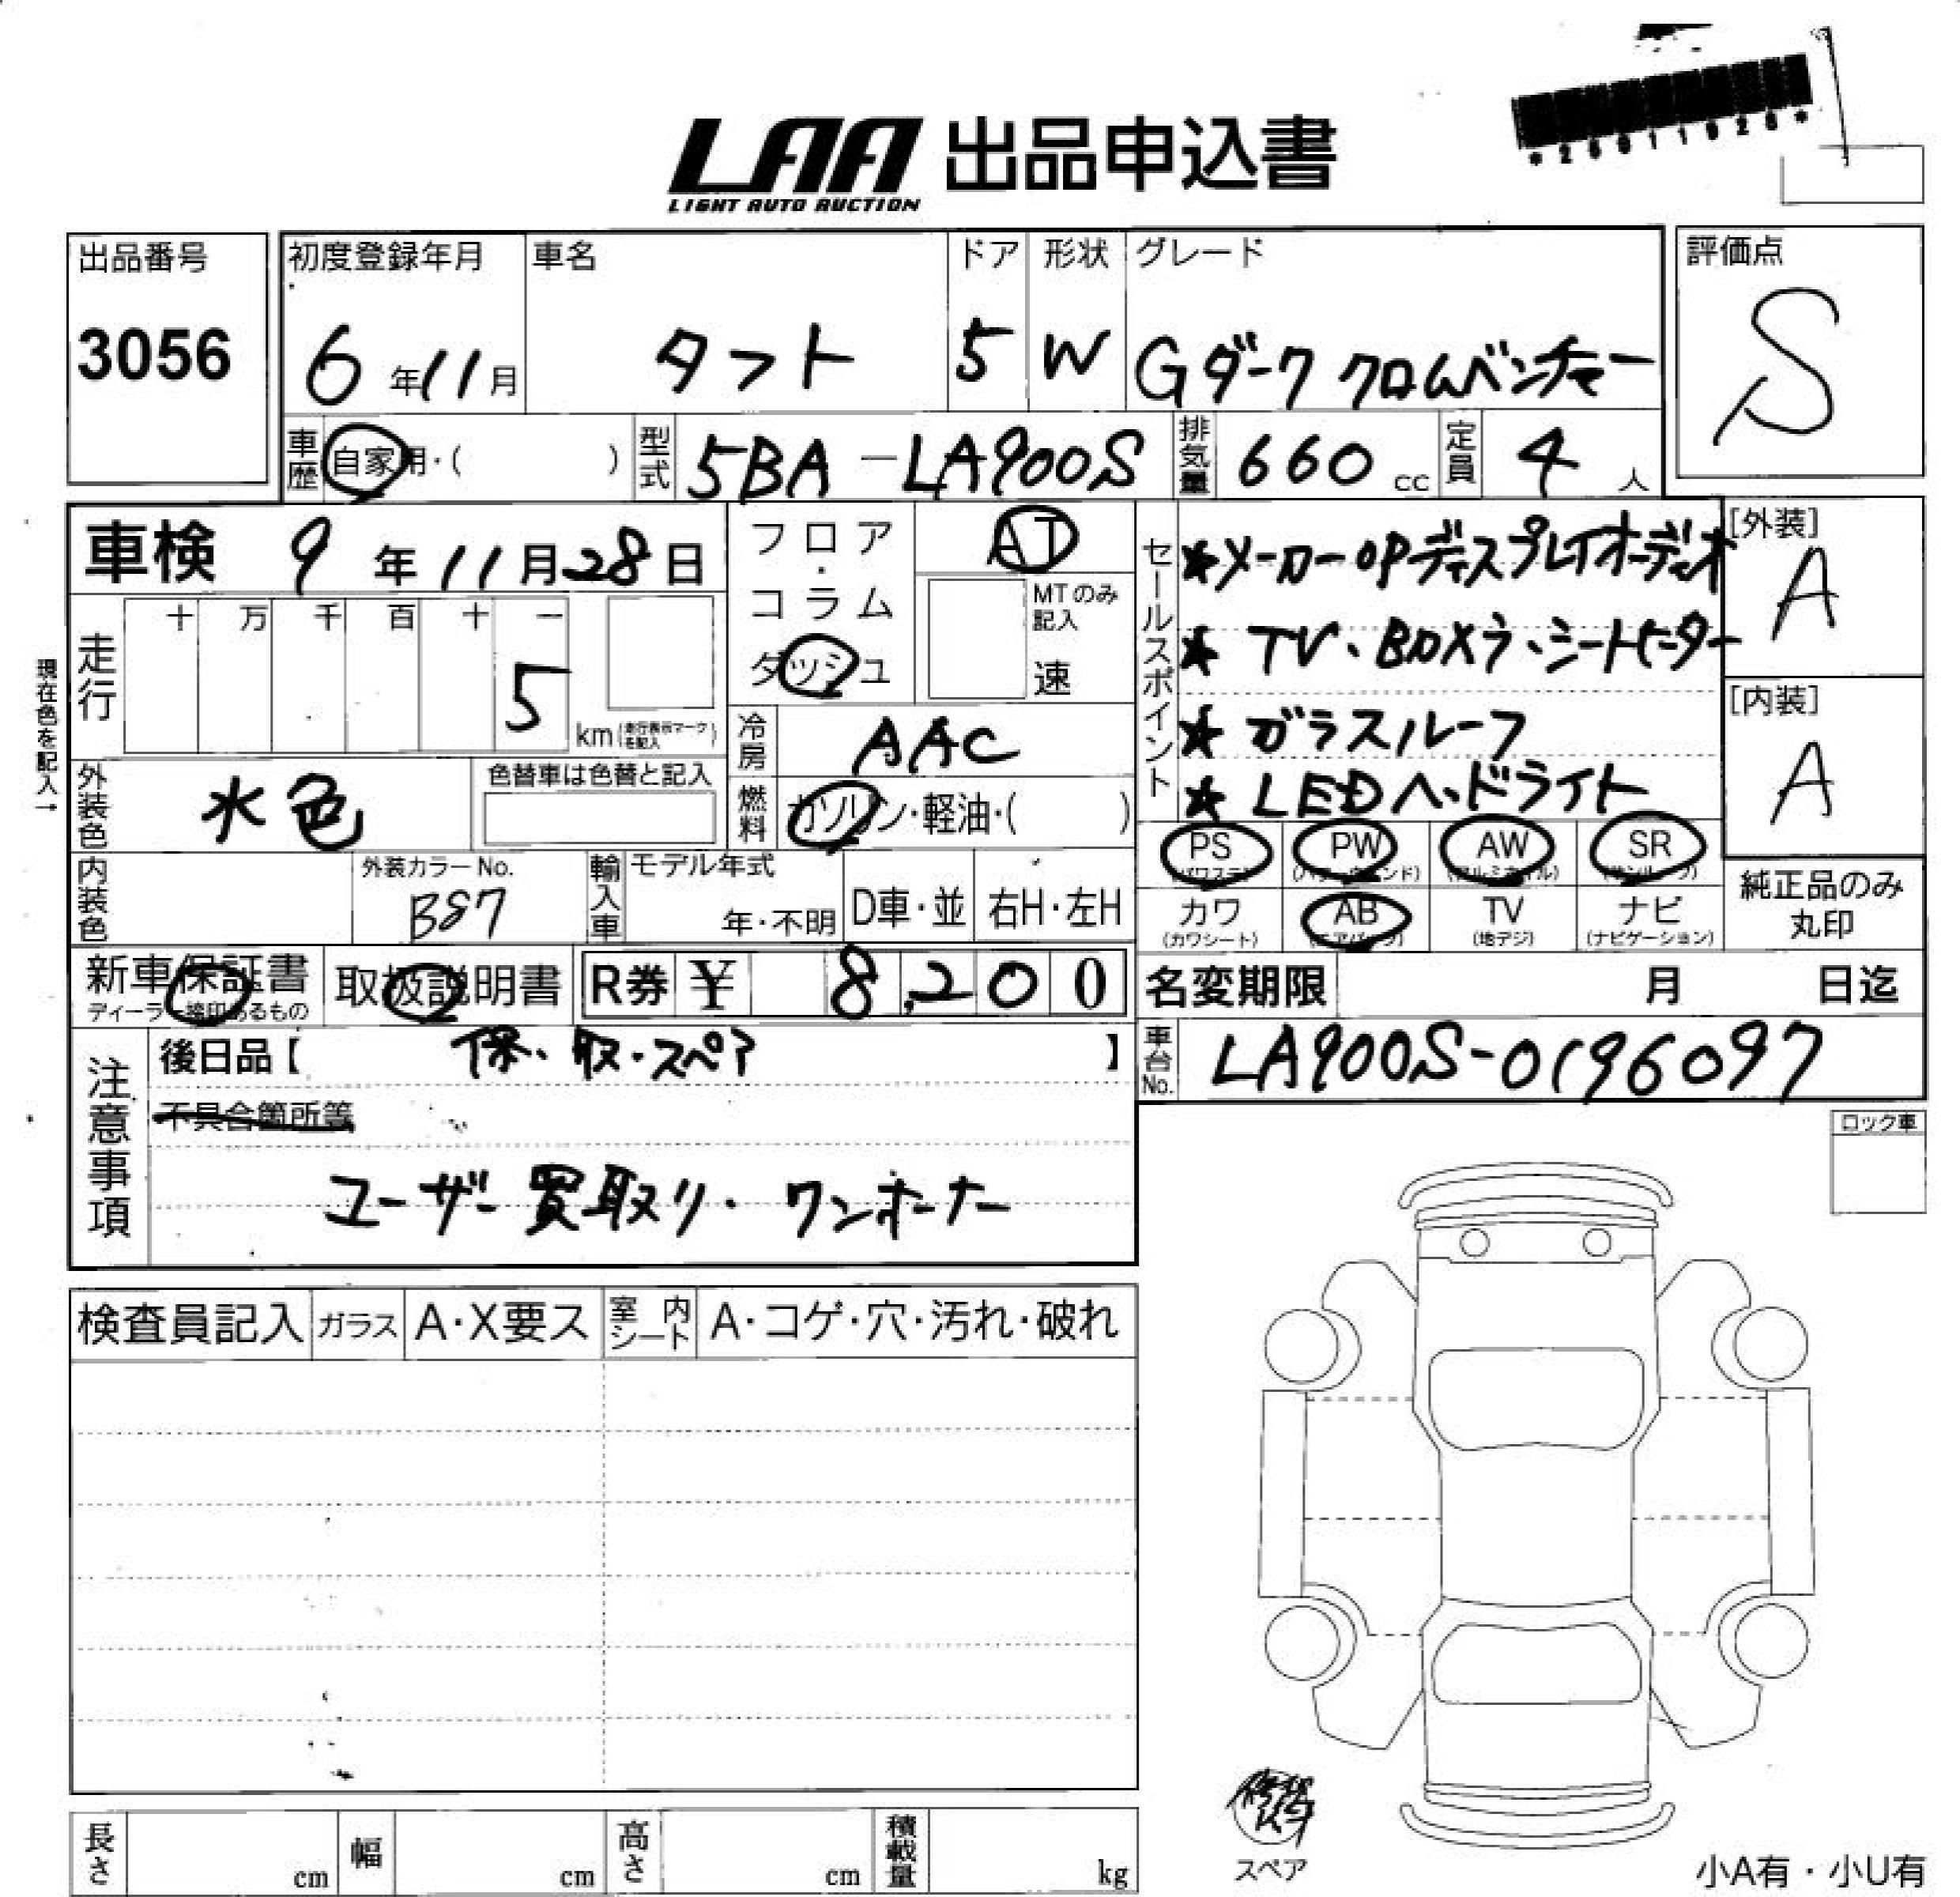 *25011020*
LAA 出品申込書
LIGHT AUTO AUCTION
出品番号
3056
初度登録年月
6年11月
車名
タフト
ドア
5
形状
W
グレード
Gダーク クロムベンチャー
評価点
S
車歴
自家用・( )
型式
5BA-LA900S
排気量
660 cc
定員
4 人
車検 9年11月28日
フロア・コラム
ダッシュ
AT
MTのみ記入
速
セールスポイント
★メーカーOPディスプレイオーディオ
★ TV・BDXラ・シートヒーター
★ ガラスルーフ
★ LEDヘッドライト
[外装]
A
[内装]
A
現在色を記入→
走行
十 万 千 百 十 一
5
km (走行表示マークを記入)
冷房
AAC
燃料
ガソリン・軽油・( )
外装色
水色
色替車は色替と記入
内装色
外装カラーNo.
B87
輸入車
モデル年式
年・不明
D車・並
右H・左H
PS
(パワステ)
PW
(パワーウィンド)
AW
(アルミホイル)
SR
(サンルーフ)
カワ
(カワシート)
AB
(エアバッグ)
TV
(地デジ)
ナビ
(ナビゲーション)
純正品のみ
丸印
新車保証書
ディーラー捺印あるもの
取扱説明書
R券 ¥ 8,200
名変期限 月 日迄
車台No.
LA900S-0196097
注意事項
後日品【 保、取・スペア 】
不具合箇所等
ユーザー買取り・ワンオーナー
ロック車
検査員記入
ガラス
A・X要ス
室内シート
A・コゲ・穴・汚れ・破れ
長さ cm
幅 cm
高さ cm
積載量 kg
スペア
小A有・小U有